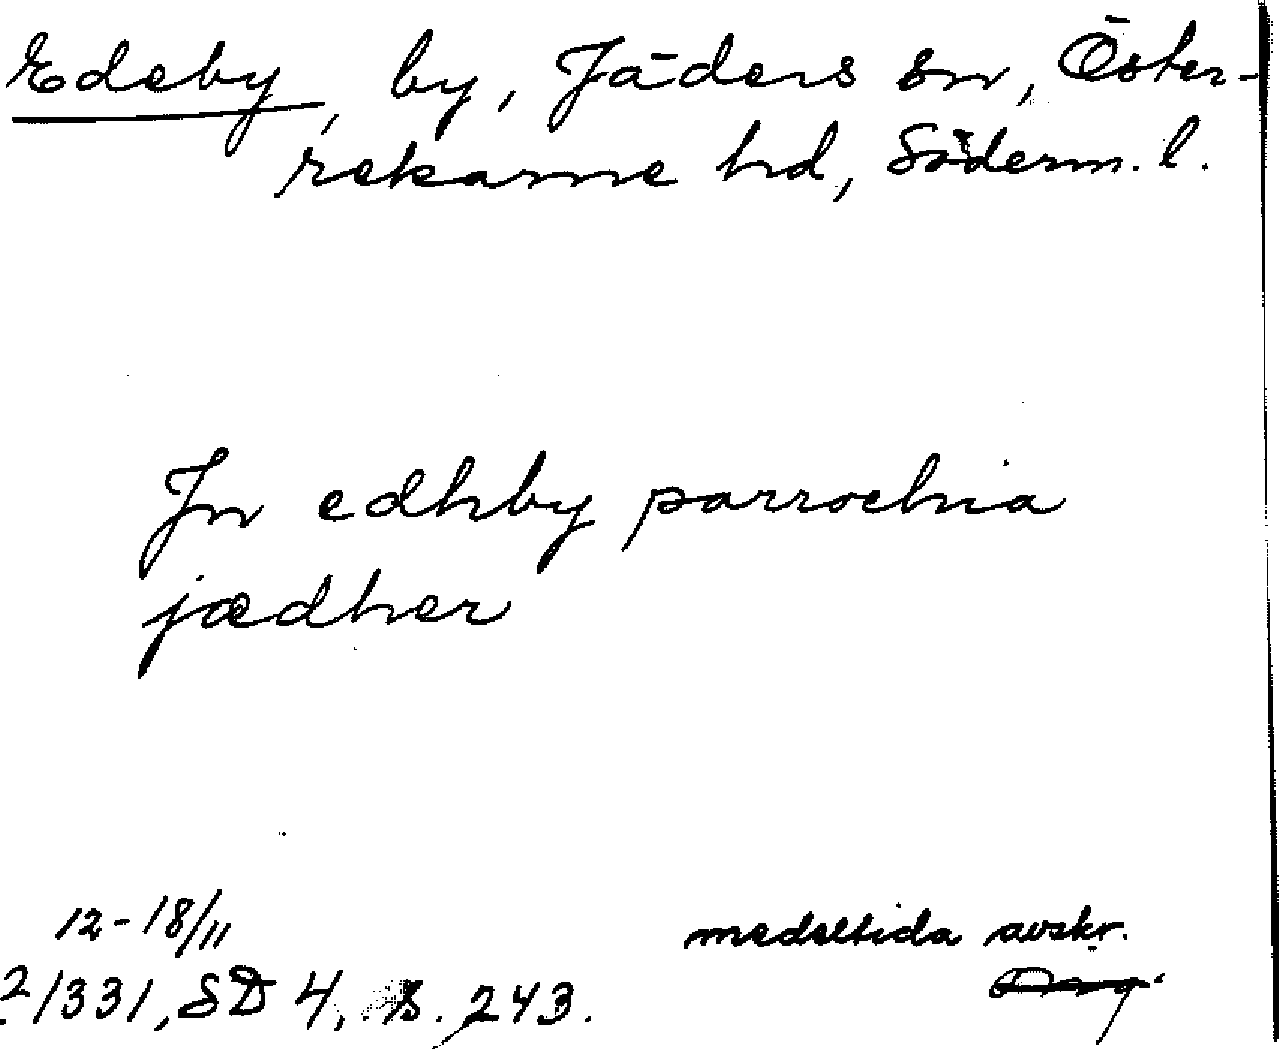 Edeby, by, Jäders sn, Öster-
rekarne hd, Söderm. l.
Jn edhby parrochia
jædher
12-18/11
1331, SD 4, s. 243.
medeltida avskr.